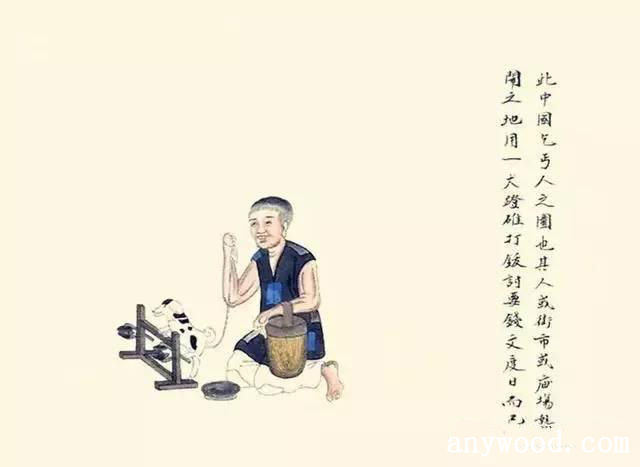 此中國乞丐人之圖也其人或街市或庙場熱
鬧之地用一犬蹬碓打鈸討要錢文度日而已
www.anywood.com